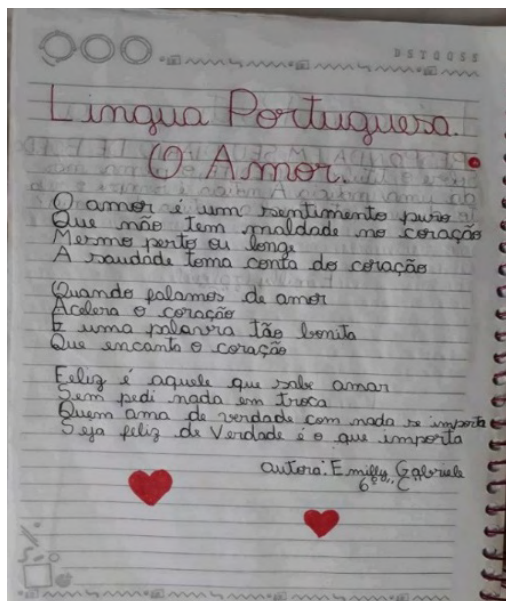 DSTQQSS
Língua Portuguesa.
O Amor.
O amor é um sentimento puro
Que não tem maldade no coração
Mesmo perto ou longe
A saudade toma conta do coração
Quando falamos de amor
Acelera o coração
E uma palavra tão bonita
Que encanta o coração
Feliz é aquele que sabe amar
Sem pedi nada em troca
Quem ama de verdade com nada se importa
Seja feliz de Verdade é o que importa
autora: Emilly Gabriele
6º "C"